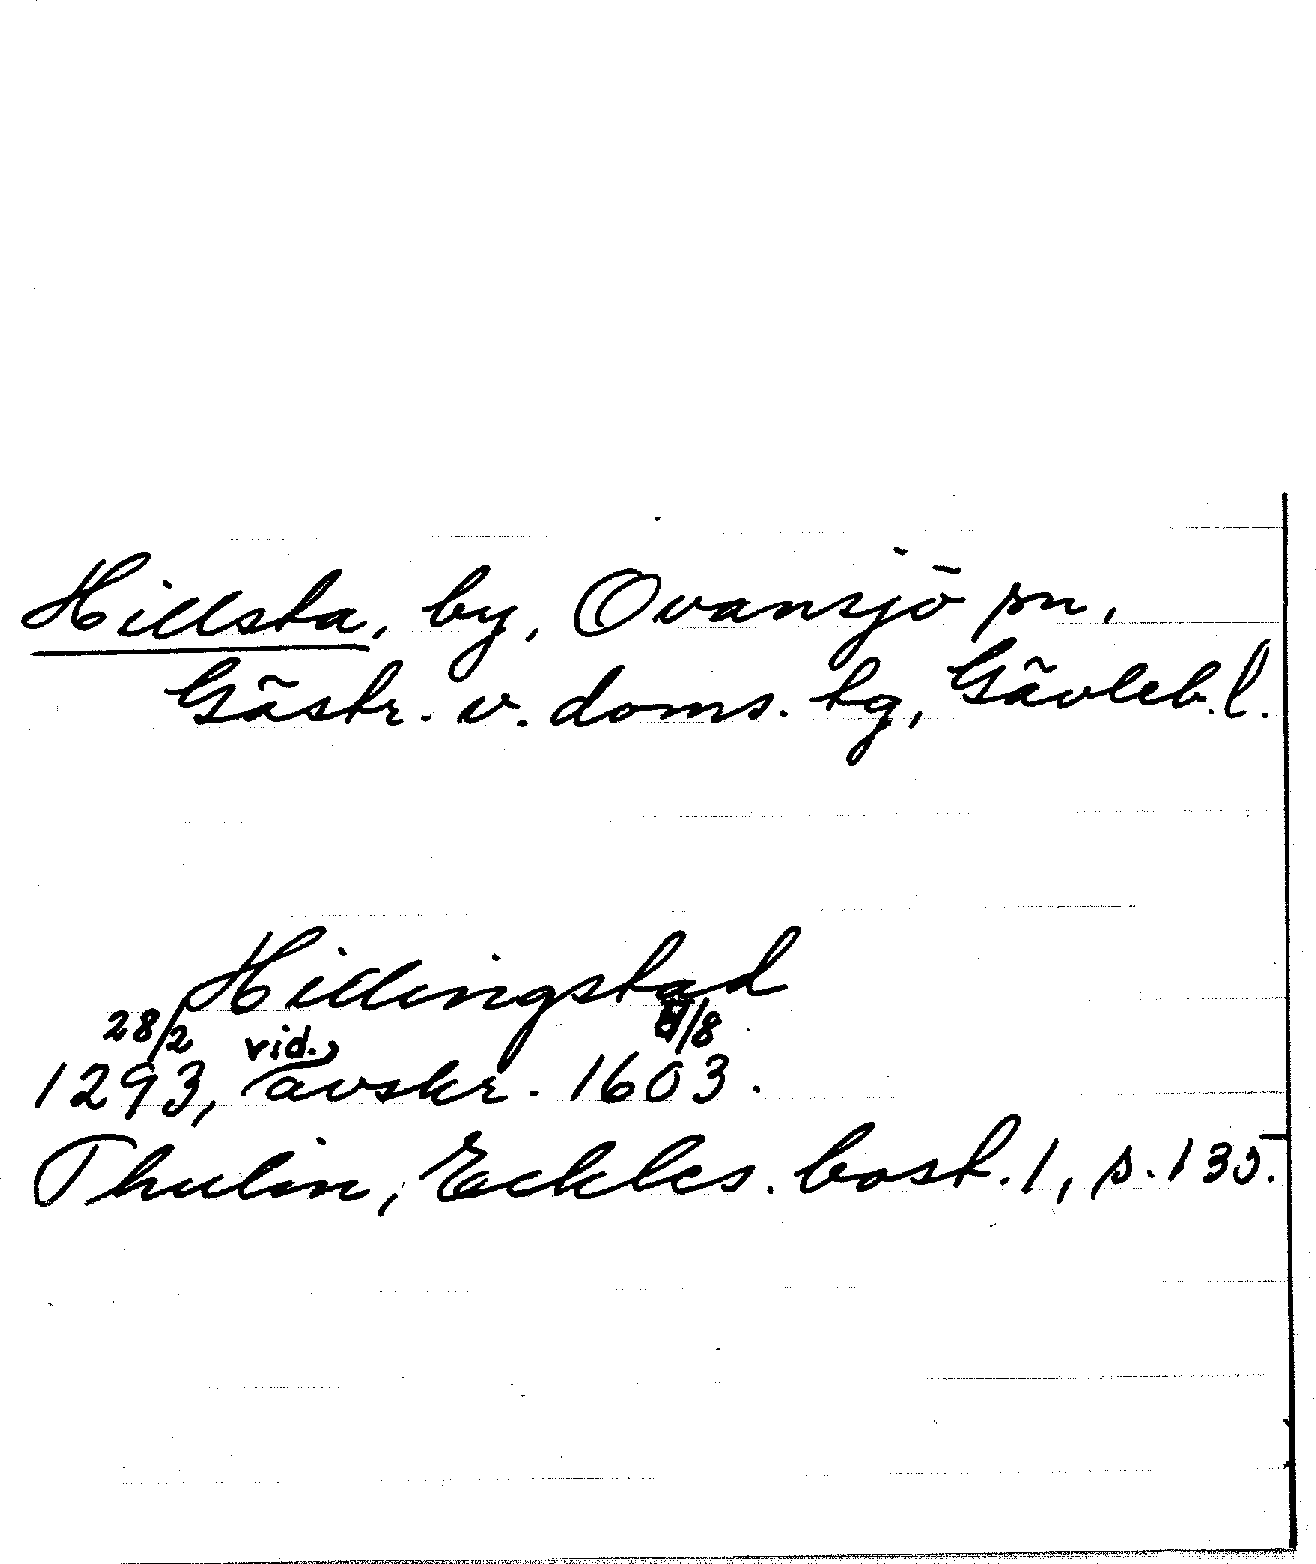 Hillsta, by, Ovansjö sn,
Gästr. v. doms. tg, Gävleb. l.
Hillingstad
28/2 /8
1293, vid. avskr. 1603.
Thulin, Eckles. bost. 1, s. 135.